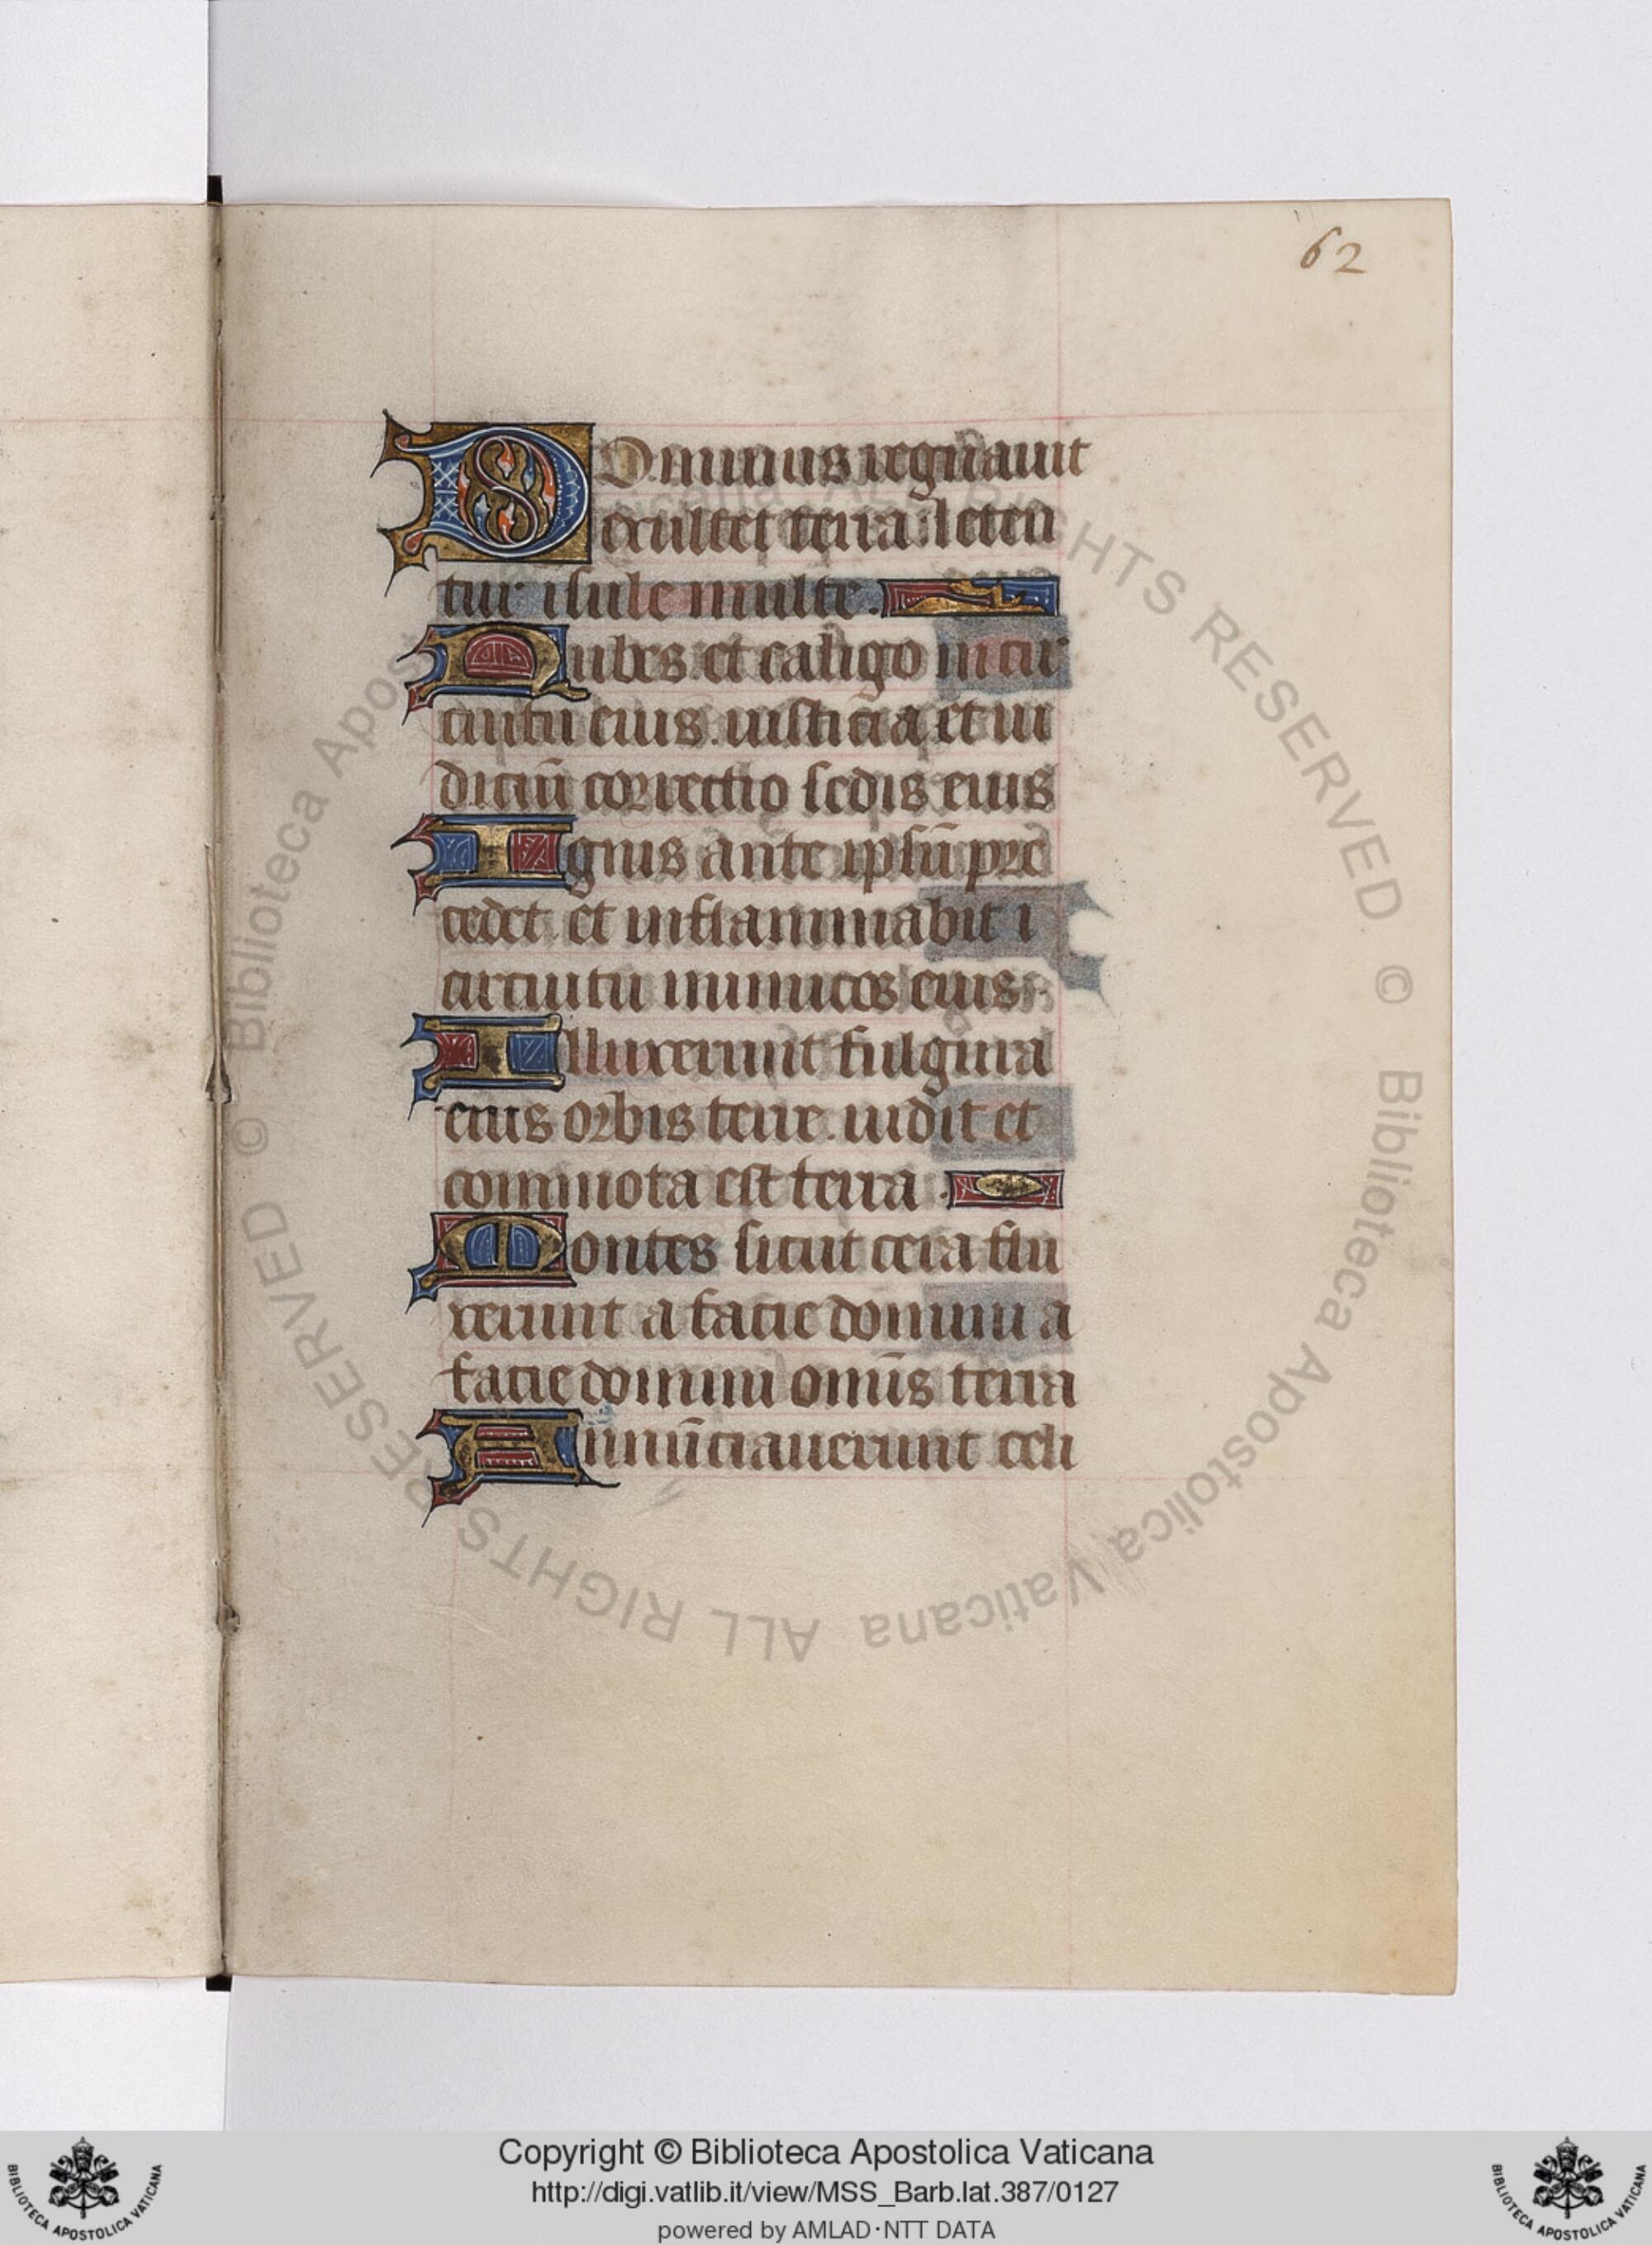 62
DOminus regnauit
exultet terra leten
tur isule multe.
Nubes et caligo in cir
cuitu eius. iusticia et iu
diciū correctio sedis eius
Ignis ante ipsū pre
cedet. et inflammabit ī
circuitu inimicos eius
Illuxerunt fulgura
eius orbis terre. uidit et
commota est terra.
Montes sicut cera flu
xerunt a facie domini a
facie domini om̄is terra
Annūciauerunt celi
© Biblioteca Apostolica Vaticana ALL RIGHTS RESERVED © Biblioteca Apostolica Vaticana ALL RIGHTS RESERVED
Copyright © Biblioteca Apostolica Vaticana
http://digi.vatlib.it/view/MSS_Barb.lat.387/0127
powered by AMLAD·NTT DATA
BIBLIOTECA APOSTOLICA VATICANA
BIBLIOTECA APOSTOLICA VATICANA